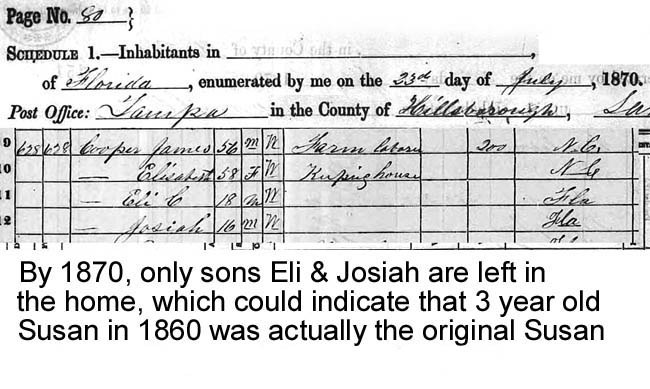 Page No. 80 }
SCHEDULE 1.—Inhabitants in , in the County of
of Florida, enumerated by me on the 23rd day of July, 1870.
Post Office: Tampa in the County of Hillsborough,
9 628 628 Cooper James 56 m W Farm labore 200 N.C.
10 — Elisabeth 58 F W Kuping house N C
11 — Eli C 18 m W Fla
12 — Josiah 16 m W Fla
By 1870, only sons Eli & Josiah are left in
the home, which could indicate that 3 year old
Susan in 1860 was actually the original Susan